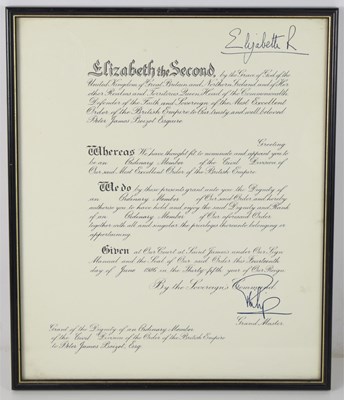 Elizabeth R
Elizabeth the Second, by the Grace of God of the
United Kingdom of Great Britain and Northern Ireland and of Her
other Realms and Territories Queen, Head of the Commonwealth,
Defender of the Faith and Sovereign of the Most Excellent
Order of the British Empire to Our trusty and well beloved
Peter James Esquire
Greeting
Whereas We have thought fit to nominate and appoint you to
be an Ordinary Member of the Civil Division of
Our said Most Excellent Order of the British Empire
We do by these presents grant unto you the Dignity of
an Ordinary Member of Our said Order and hereby
authorise you to have hold and enjoy the said Dignity and Rank
of an Ordinary Member of Our aforesaid Order
together with all and singular the privileges thereunto belonging or
appertaining.
Given at Our Court at Saint James's under Our Sign
Manual and the Seal of Our said Order this Fourteenth
day of June 1986 in the Thirty-fifth year of Our Reign
By the Sovereign's Command.
Philip
Grand Master
Grant of the Dignity of an Ordinary Member
of the Civil Division of the Order of the British Empire
to Peter James Esq.